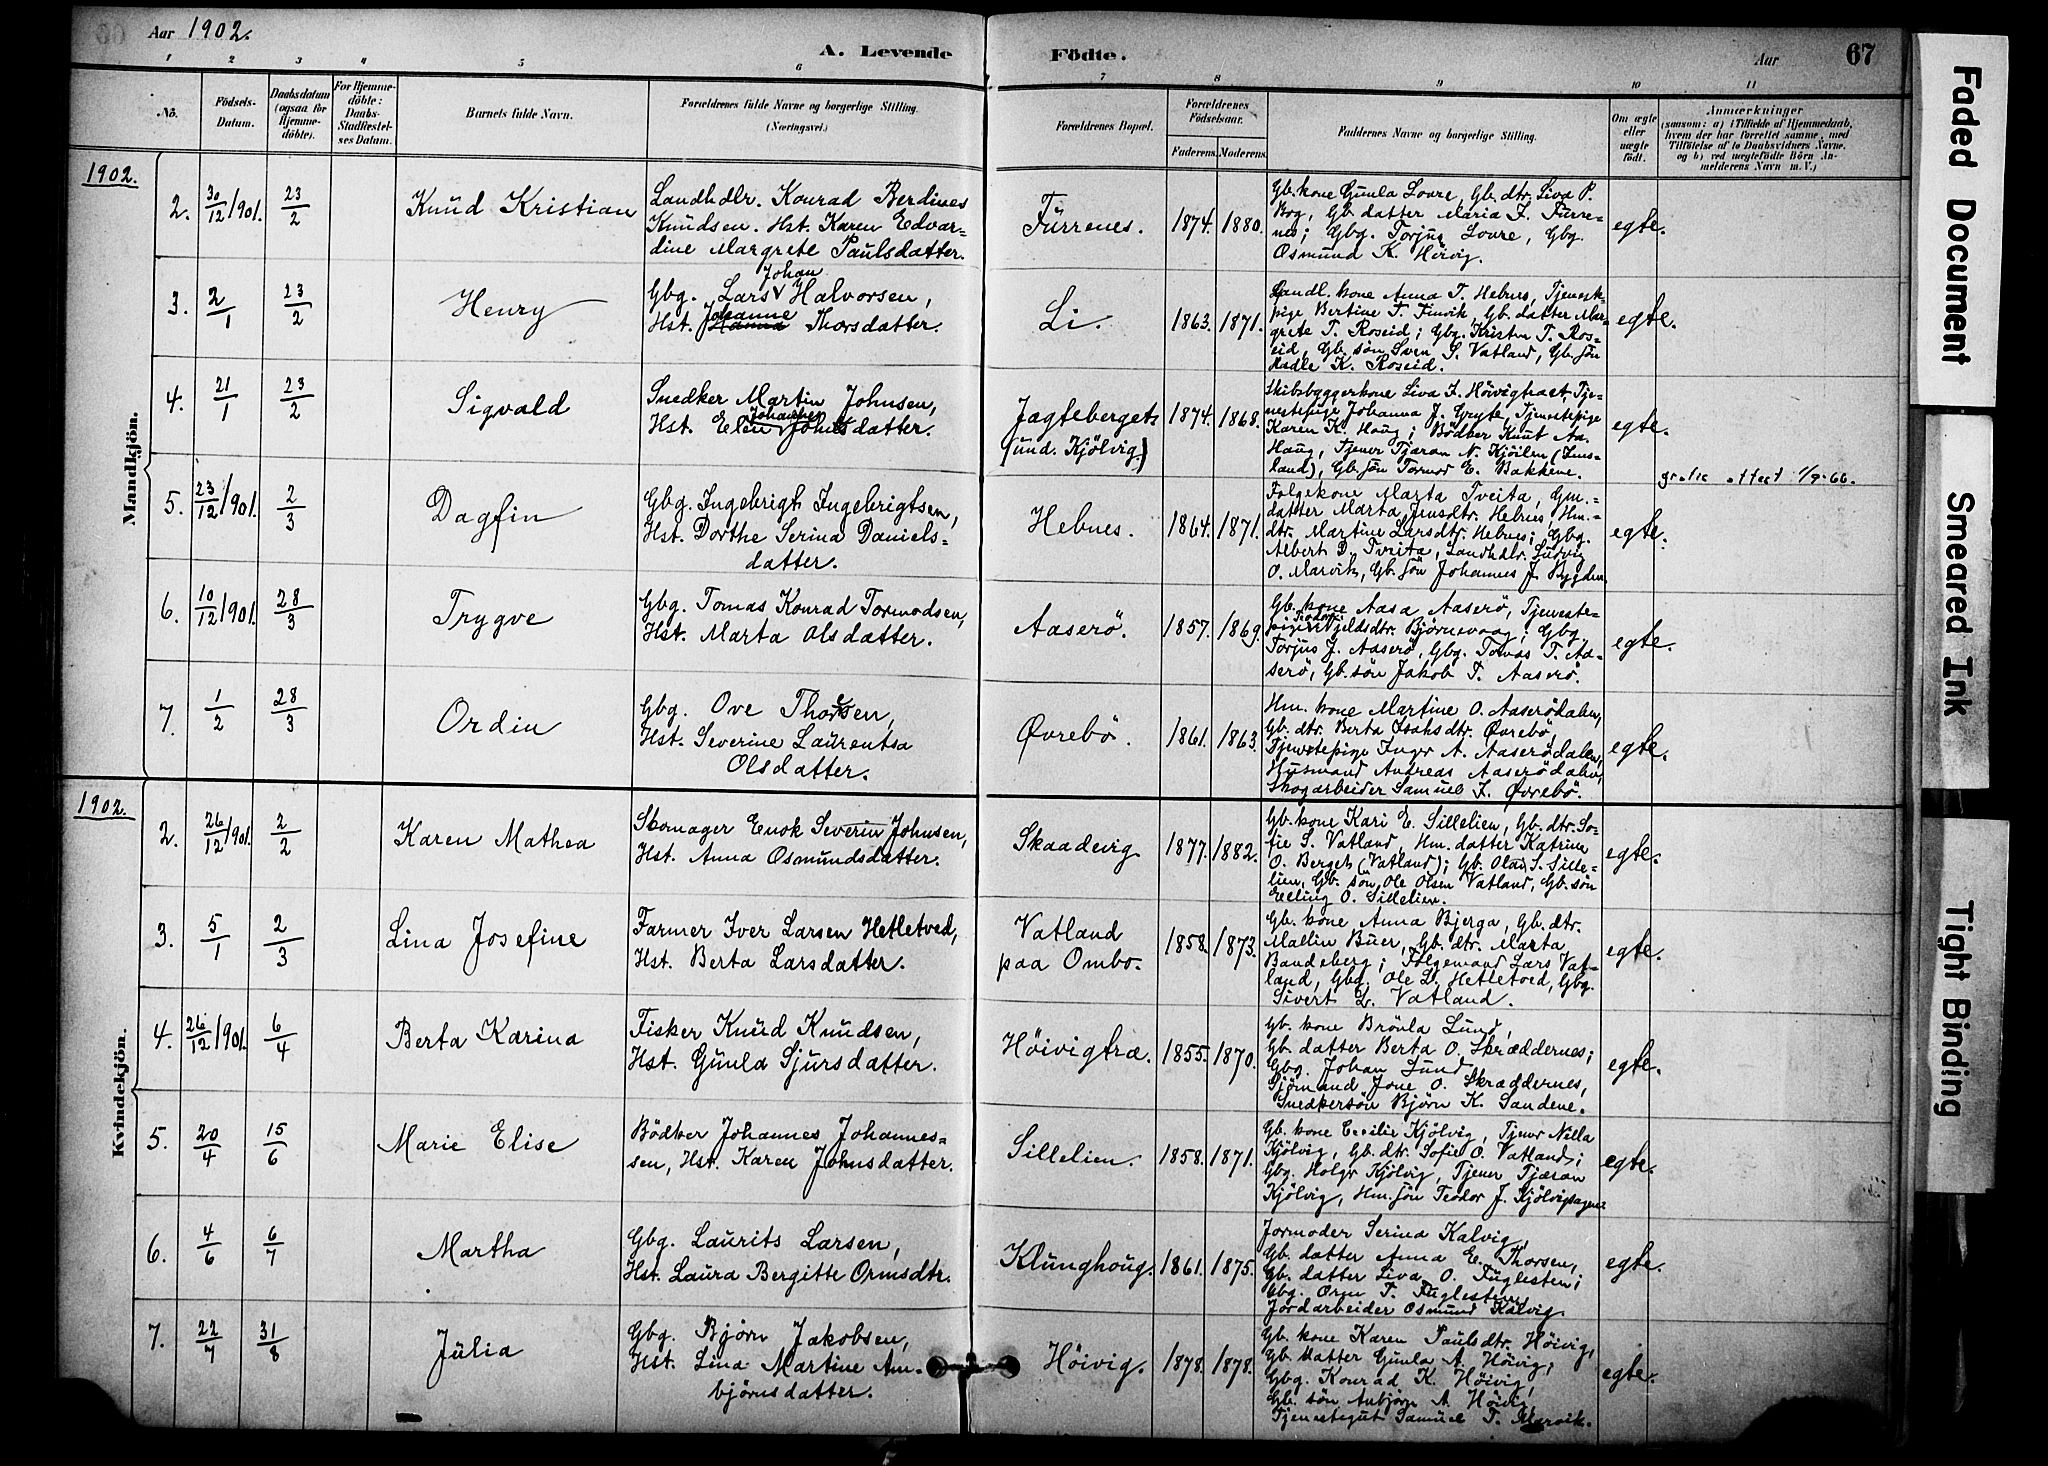 Aar 1902.
A. Levende Födte.
Aar
67
1 2 3 4 5 6 7 8 9 10 11
Nö.
Födsels-Datum.
Daabsdatum (ogsaa for Hjemmedöbte).
For Hjemmedöbte: Daabs-Stadfæstelses Datum.
Barnets fulde Navn.
Forældrenes fulde Navne og borgerlige Stilling.
(Næringsvei.)
Forældrenes Bopæl.
Forældrenes Födselsaar.
Faderens.
Moderens.
Faddernes Navne og borgerlige Stilling.
Om ægte eller uægte födt.
Anmærkninger
(saasom: a) i Tilfælde af Hjemmedaab, hvem der har forrettet samme, med Tilföielse af to Daabsvidners Navne. og b) ved uægtefödte Börn Anmelderens Navn m. V.)
Mandkjön.
1902.
2. 30/12 1901. 23/2
Knud Kristian
Landhdlr. Konrad Berdines
Knudsen. Hst. Karen Edvar=
dine Margrete Paulsdatter.
Furrenes.
1874. 1880.
Gb. kone Gunla Lovre, Gb. dtr. Liva P.
Bog, Gb. datter Maria J. Furre-
nes; Gbg. Torjus Lovre, Gbg.
Osmund K. Höivig.
egte.
3. 2/1 23/2
Henry
Johan
Gbg. Lars Halvorsen,
Johanne
Hst. Hanna Thorsdatter.
Li.
1863. 1871.
Landl. kone Anna T. Hebnes, Tjeneste-
pige Bertine T. Finvik, Gb. datter Mar-
grete T. Roseid; Gbg. Kristen T. Ros-
eid, Gb. sön Sven S. Vatland, Gb. sön
Hadle K. Roseid.
egte.
4. 21/1 23/2
Sigvald
Snedker Martin Johnsen,
Johannes
Hst. Elen Johnsdatter.
Jagteberget
(und. Kjölvig)
1874. 1868.
Skibsbyggerkone Liva J. Höivigtraet, Tje-
nestepige Johanna J. Gryte, Tjenestepige
Karen K. Haug; Bödker Knut Aa.
Haug, Tjener Tjæran N. Kjöilen (Ims-
land), Gb. sön Tormod E. Bakkene.
egte.
gratis attest 1/9-66.
5. 23/12 1901. 2/3
Dagfin
Gbg. Ingebrigt Ingebrigtsen,
Hst. Dorthe Serina Daniels=
datter.
Hebnes.
1864. 1871.
Folgekone Marta Tveita, Gm.-
datter Marta Jensdtr. Hebnes, Hm.-
dtr. Martine Larsdtr. Hebnes; Gbg.
Albert D. Tveita, Landhdlr. Ludvig
O. Marvik, Gb. sön Johannes J. Bygden
egte.
6. 10/12 1901. 28/3
Trygve
Gbg. Tomas Konrad Tormodsen,
Hst. Marta Olsdatter.
Aaserö.
1857. 1869.
Gb. kone Aasa Aaserö, Tjeneste-
pige Fjeldsdtr. Björnevaag; Gbg.
Torjus J. Aaserö, Gbg. Tomas T. Aa-
serö, Gb. sön Jakob T. Aaserö.
egte.
7. 1/2 28/3
Ordin
Gbg. Ove Thorsen,
Hst. Severine Laurentsa
Olsdatter.
Øvrebö.
1861. 1863.
Hm. kone Martine O. Aaserödalen,
Gb. dtr. Berta Isaksdtr. Øvrebö,
Tjenestepige Inger A. Aaserödalen,
Husmand Andreas Aaserödalen,
Skogarbeider Samuel I. Øvrebö.
egte.
Kvindekjön.
1902.
2. 26/12 1901. 2/2
Karen Mathea
Skomager Enok Severin Johnsen,
Hst. Anna Osmundsdatter.
Skaadevig
1877. 1882.
Gb. kone Kari E. Sillelien, Gb. dtr. So-
fie S. Vatland, Hm. datter Katrine
O. Berget (Vatland); Gb. Olai S. Sille-
lien, Gb. sön Ole Olsen Vatland, Gb. sön
Elling O. Sillelien.
egte.
3. 5/1 2/3
Lina Josefine
Farmer Iver Larsen Hetletved,
Hst. Berta Larsdatter.
Vatland
paa Ombo.
1858. 1873.
Gb. kone Anna Bjerga, Gb. dtr.
Mallin Buer, Gb. dtr. Marta
Bandeberg; Folgemand Lars Vat-
land, Gbg. Ole L. Hetletved, Gbg.
Sivert L. Vatland.
egte.
4. 26/12 1901. 6/4
Berta Karina
Fisker Knud Knudsen,
Hst. Gunla Sjursdatter.
Höivigtra.
1855. 1870.
Gb. kone Brönla Lund,
Gb. datter Berta O. Skræddernes;
Gbg. Johan Lund,
Sjömand Jone O. Skræddernes,
Snedkersön Björn K. Sandene.
egte.
5. 20/4 15/6
Marie Elise
Bödker Johannes Johannes=
sen, Hst. Karen Johnsdatter.
Sillelien.
1858. 1871.
Gb. kone Cecilie Kjölvig, Tjener Nilla
Kjölvig, Gb. dtr. Sofie O. Vatland;
Gbg. Holger Kjölvig, Tjener Tjæran
Kjölvig, Hm. sön Teodor J. Kjölvigsagen.
egte.
6. 4/6 6/7
Martha
Gbg. Laurits Larsen,
Hst. Laura Bergitte Ormsdtr.
Klunghoug.
1861. 1875.
Jormoder Serina Kalvig,
Gb. datter Anna E. Thorsen,
Gb. datter Liva O. Fuglesten;
Gbg. Orm T. Fuglesten,
Jordarbeider Osmund Kalvig.
egte.
7. 22/7 31/8
Julia
Gbg. Björn Jakobsen,
Hst. Lina Martine Am-
björnsdatter.
Höivig.
1878. 1878.
Gb. kone Karen Paulsdtr. Höivig,
Gb. datter Gunla A. Höivig;
Gbg. Konrad K. Höivig,
Gb. sön Anbjörn A. Höivig,
Tjenestegut Samuel T. Marvik.
egte.
Faded Document
Smeared Ink
Tight Binding